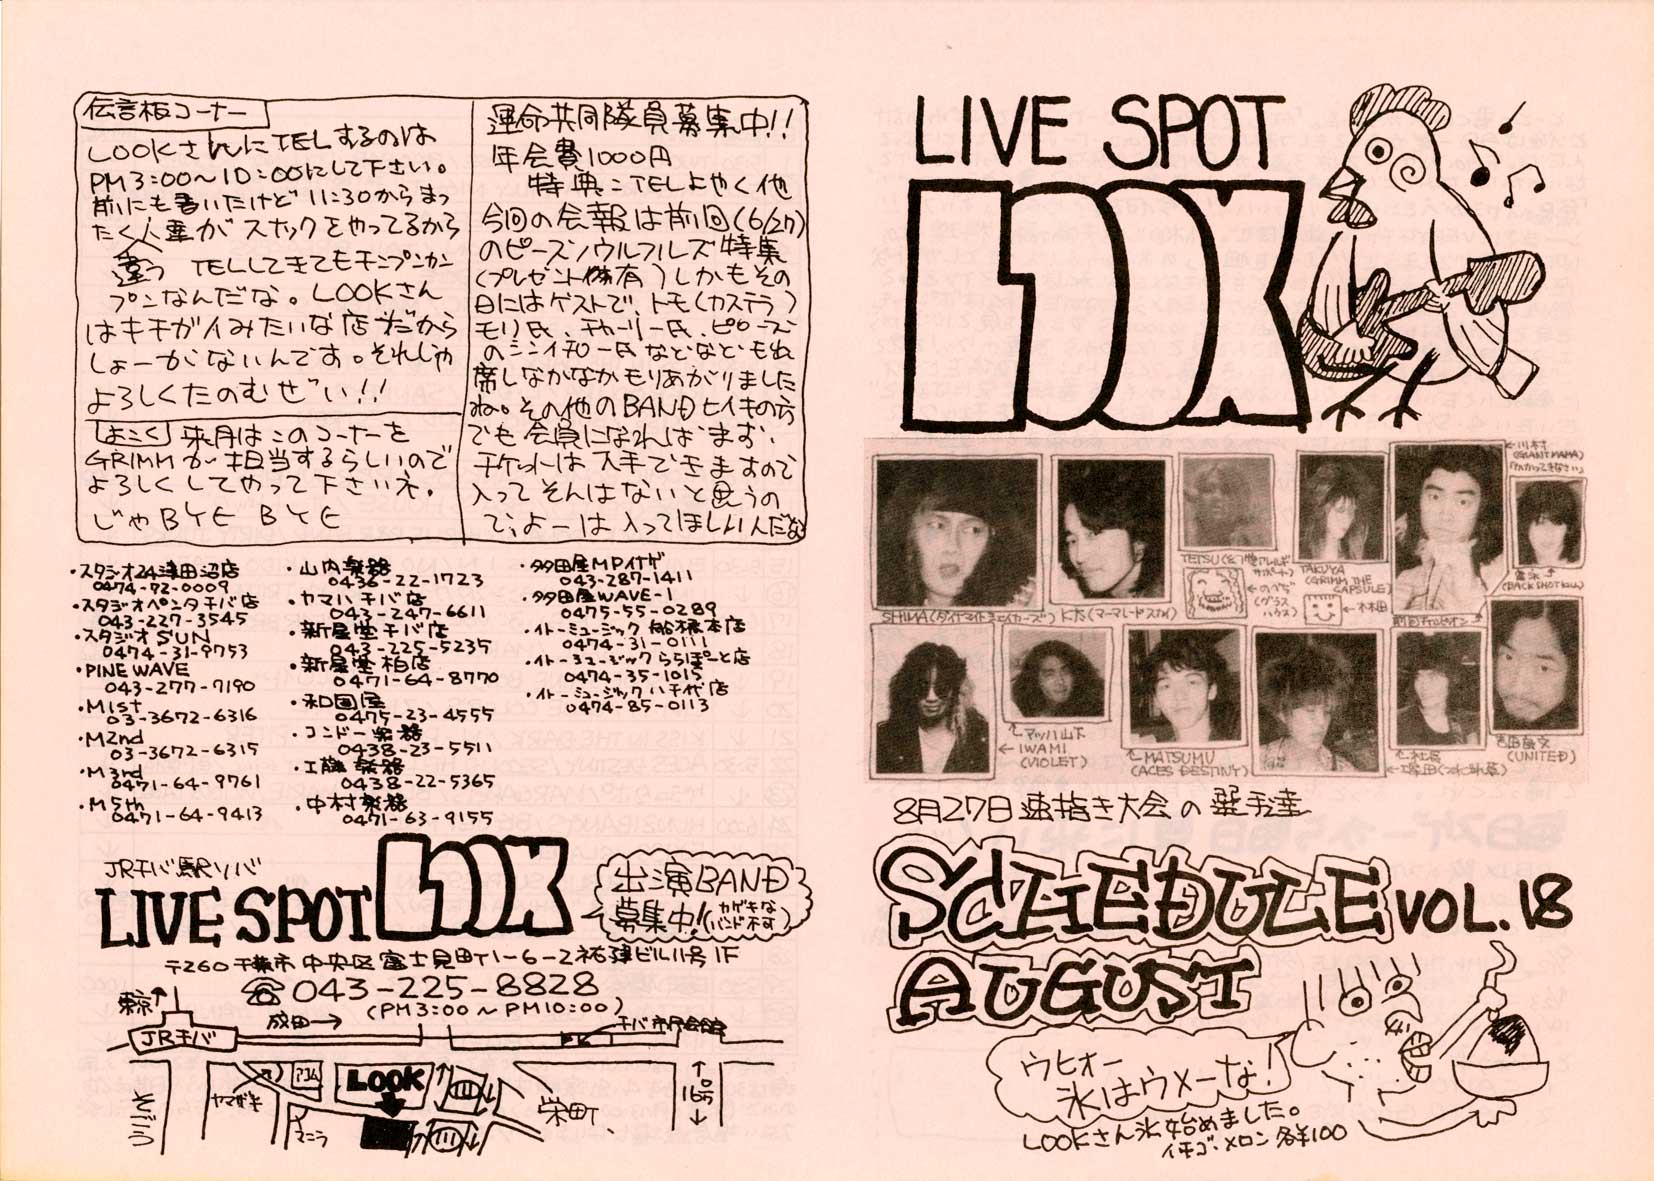 伝言板コーナー
LOOKさんにTELするのは
PM3:00〜10:00にして下さい。
前にも書いたけど11:30からまっ
たく人種がスナックをやってるから
違う TELしてきてもチンプンカン
プンなんだな。LOOKさん
はキチガイみたいな店だから
しょーがないんです。それじゃ
よろしくたのむぜい!!
よこく 来月はこのコーナーを
GRIMMが担当するらしいので
よろしくしてやって下さいネ。
じゃBYE BYE
運命共同隊員募集中!!
年会費1000円
特典:TELよやく他
今回の会報は前回(6/27)
のピーズ・ウルフルズ特集
(プレゼント
有)しかもその
日にはゲストで、トモ(カステラ)
モリ氏、チャーリー氏、ピローズ
のシンイチロー氏などなどもれ
席しなかなかもりあがりました
ね。その他のBANDヒイキの方
でも会員になればまず、
チケットは入手できますので
入ってそんはないと思うの
で、よーは入ってほしいんだな
・スタジオ24津田沼店
0474-72-0009
・スタジオペンタチバ店
043-227-3545
・スタジオSUN
0474-31-9753
・PINE WAVE
043-277-7190
・M1st
03-3672-6316
・M2nd
03-3672-6315
・M3rd
0471-64-9761
・M5th
0471-64-9413
・山内楽器
0436-22-1723
・ヤマハチバ店
043-247-6611
・新星堂チバ店
043-225-5235
・新星堂柏店
0471-64-8770
・和田屋
0475-23-4555
・コンドー楽器
0438-23-5511
・工藤楽器
0438-22-5365
・中村楽器
0471-63-9155
・多田屋MPイナゲ
043-287-1411
・多田屋WAVE-1
0475-55-0289
・イトーミュージック船橋本店
0474-31-0111
・イトーミュージックららぽーと店
0474-35-1015
・イトーミュージック八千代店
0474-85-0113
JRチバ駅ソバ
LIVE SPOT LOOK
出演BAND
募集中!(カゲキなバンド不可)
〒260 千葉市中央区富士見町1-6-2 祐葎ビル11号1F
☎043-225-8828
(PM3:00〜PM10:00)
東京↑
成田→
JRチバ
チバ市民会館
そごう
ヤマザキ
アコム
マニラ
LOOK
栄町
16号
LIVE SPOT
LOOK
←川村
(GIANT MAMA)
「かかってきなさい」
TETSU
サポート)
←のぺぢ
(グラス
ハウス)
TAKUYA
(GRIMM THE
CAPSULE)
←木本田
(BACK SHOT
SHINA(ダイナマイトシェイカーズ)
ヒトた(マーマレードスカイ)
前回チャンピオン
↑マッハ山下
←IWAMI
(VIOLET)
↑MATSUMU
(ACES DESTINY)
↑社長
←塚田(つれづれ草)
吉田良文
(UNITED)
8月27日 速指き大会の選手達
SCHEDULE VOL.18
AUGUST
ウヒォー
氷はウメーな!
LOOKさん氷始めました。
イチゴ・メロン 各¥100